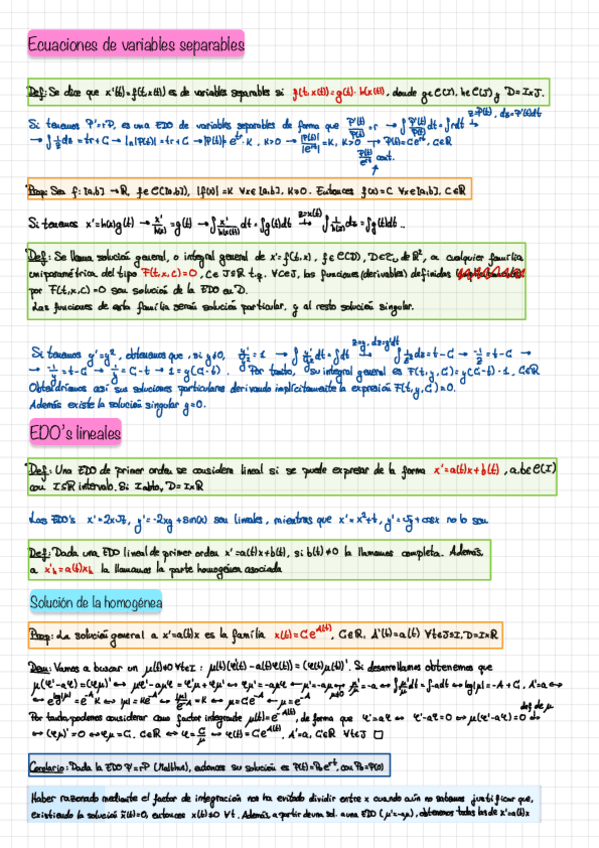 Ecuaciones de variables separables
Def: Se dice que x'(t)=f(t,x(t)) es de variables separables si f(t,x(t))=g(t)·h(x(t)), donde g∈C(I), h∈C(J) y D=I×J.
Si tenemos P'=rP, es una EDO de variables separables de forma que P'(t)/P(t)=r → ∫P'(t)/P(t) dt=∫rdt → z=P(t), dz=P'(t)dt
→ ∫1/z dz=tr+C → ln|P(t)|=tr+C → |P(t)|=e^rt·K, K>0 → |P(t)|/|e^rt|=K, K>0 → P(t)=Ce^rt, C∈R
P(t)/e^rt cont.
Prop: Sea f:[a,b]→R, f∈C([a,b]), |f(x)|=K ∀x∈[a,b], K>0. Entonces f(x)=C ∀x∈[a,b], C∈R
Si tenemos x'=h(x)g(t) → x'/h(x)=g(t) → ∫x'/h(x(t)) dt=∫g(t)dt → z=x(t) ∫1/h(z) dz=∫g(t)dt..
Def: Se llama solución general, o integral general de x'=f(t,x), f∈C(D), D⊂R², a cualquier familia
uniparamétrica del tipo F(t,x,C)=0, C∈J⊆R t.q. ∀C∈J, las funciones (derivables) definidas
por F(t,x,C)=0 son solución de la EDO en D.
Las funciones de esta familia serán solución particular, y al resto solución singular.
Si tenemos y'=y², obtenemos que, si y≠0, y'/y²=1 → ∫y'/y² dt=∫dt → z=y, dz=y'dt ∫1/z² dz=t-C → -1/z=t-C →
→ -1/y=t-C → 1/y=C-t → 1=y(C-t). Por tanto, su integral general es F(t,y,C)=y(C-t)-1, C∈R
Obtendríamos así sus soluciones particulares derivando implícitamente la expresión F(t,y,C)=0.
Además existe la solución singular y=0.
EDO's lineales
Def: Una EDO de primer orden se considera lineal si se puede expresar de la forma x'=a(t)x+b(t), a,b∈C(I)
con I⊆R intervalo. Si I abto, D=I×R
Las EDO's x'=2x√t, y'=-2xy+sin(x) son lineales, mientras que x'=x²+t, y'=√y+cosx no lo son
Def: Dada una EDO lineal de primer orden x'=a(t)x+b(t), si b(t)≠0 la llamamos completa. Además,
a x'h=a(t)xh la llamamos la parte homogénea asociada
Solución de la homogénea
Prop: La solución general a x'=a(t)x es la familia x(t)=Ce^A(t), C∈R, A'(t)=a(t) ∀t∈J⊆I, D=I×R
Dem: Vamos a buscar un μ(t)≠0 ∀t∈I: μ(t)(φ'(t)-a(t)φ(t))=(φ(t)μ(t))'. Si desarrollamos obtenemos que
μ(φ'-aφ)=(φμ)' ↔ μφ'-aμφ=φ'μ+φμ' ↔ φμ'=-aμφ ← μ'=-aμ ↔ μ'/μ=-a ↔ ∫μ'/μ dt=∫-adt ↔ log|μ|=-A+C, A'=a ↔
↔ e^log|μ|=e^-A K ↔ |μ|=Ke^-A ↔ |μ|/e^-A=K ↔ μ=Ce^-A ← μ=e^-A
Por tanto podemos considerar como factor integrante μ(t)=e^-A(t), de forma que φ'=aφ ↔ φ'-aφ=0 ↔ μ(φ'-aφ)=0 ↔ def de μ
↔ (φμ)'=0 ↔ φμ=C, C∈R ↔ φ=C/μ ↔ φ(t)=Ce^A(t), A'=a, C∈R ∀t∈J □
Corolario: Dada la EDO P'=rP (Malthus), entonces su solución es P(t)=P₀e^rt, con P₀=P(0)
Haber razonado mediante el factor de integración nos ha evitado dividir entre x cuando aún no sabemos justificar que,
existiendo la solución x(t)=0, entonces x(t)≠0 ∀t. Además, a partir de una sol. a una EDO (μ'=-aμ), obtenemos todas las de x'=a(t)x